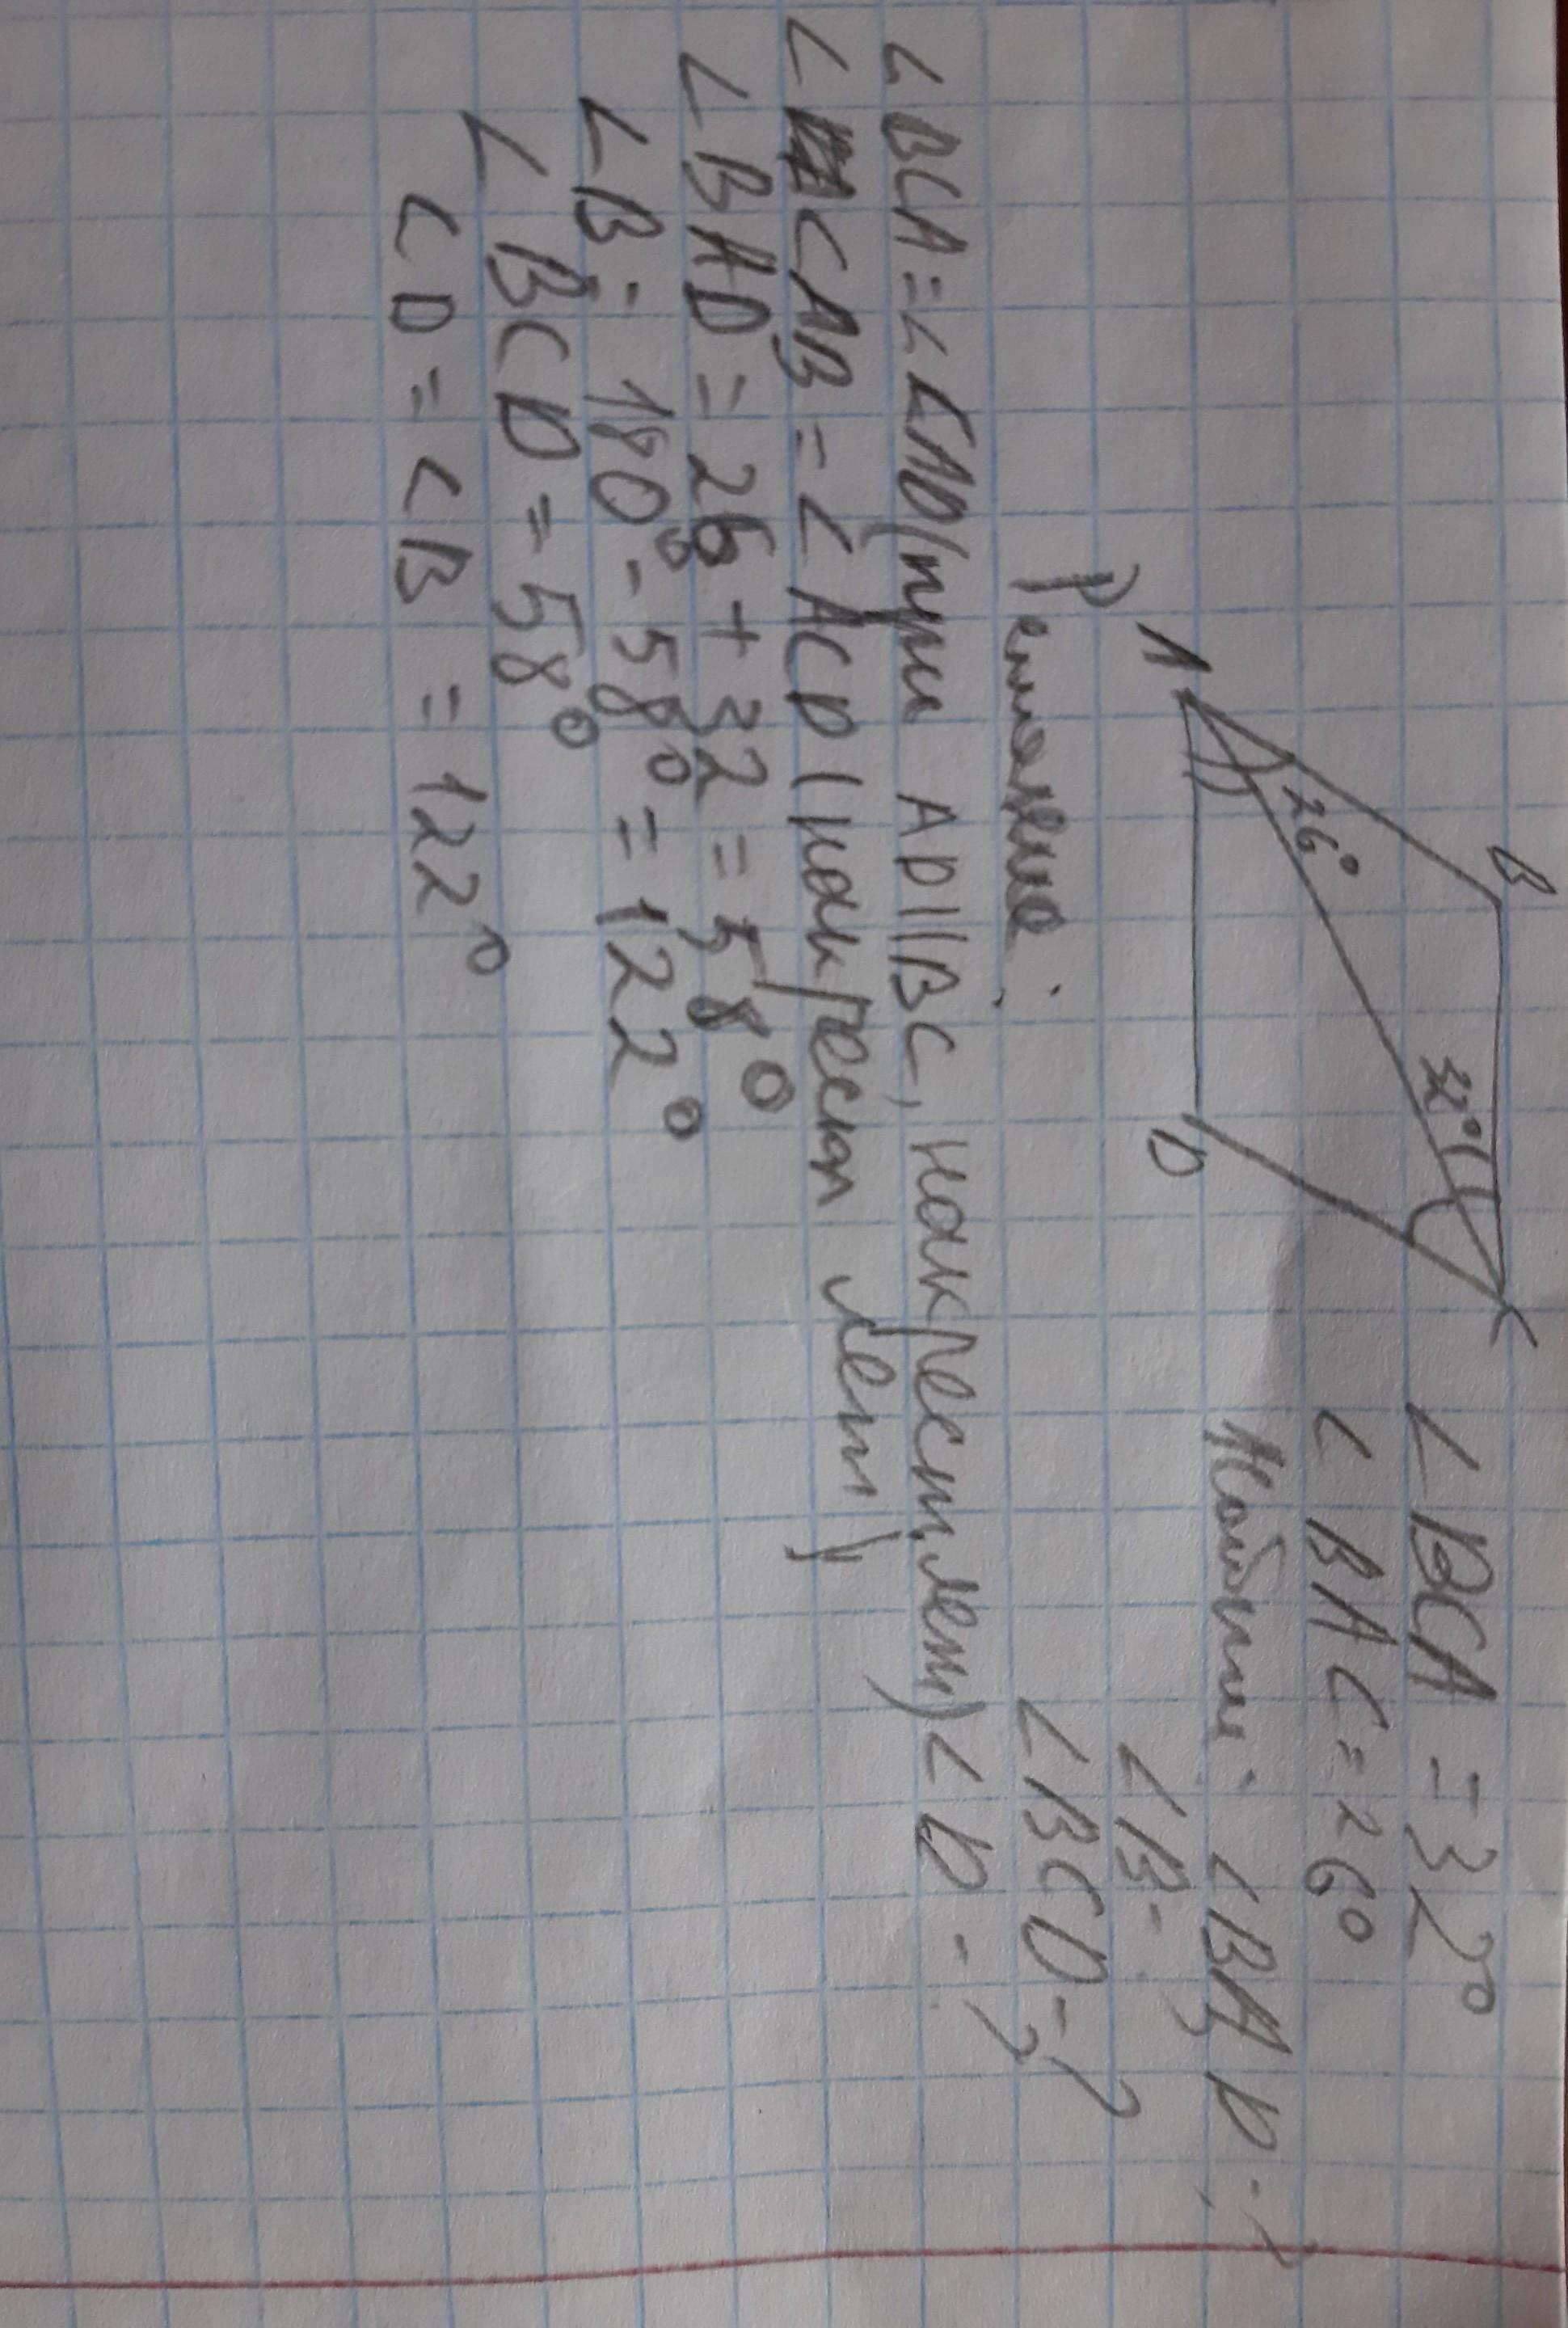 B C
26° 32°
A D
∠BCA = 32°
∠BAC = 26°
Найти: ∠BAD - ?
∠B -
∠BCD - ?
Решение:
∠BCA = ∠CAD (при AD||BC, накрест леж) ∠D - ?
∠CAB = ∠ACD (накрест леж)
∠BAD = 26 + 32 = 58°
∠B = 180° - 58° = 122°
∠BCD = 58°
∠D = ∠B = 122°